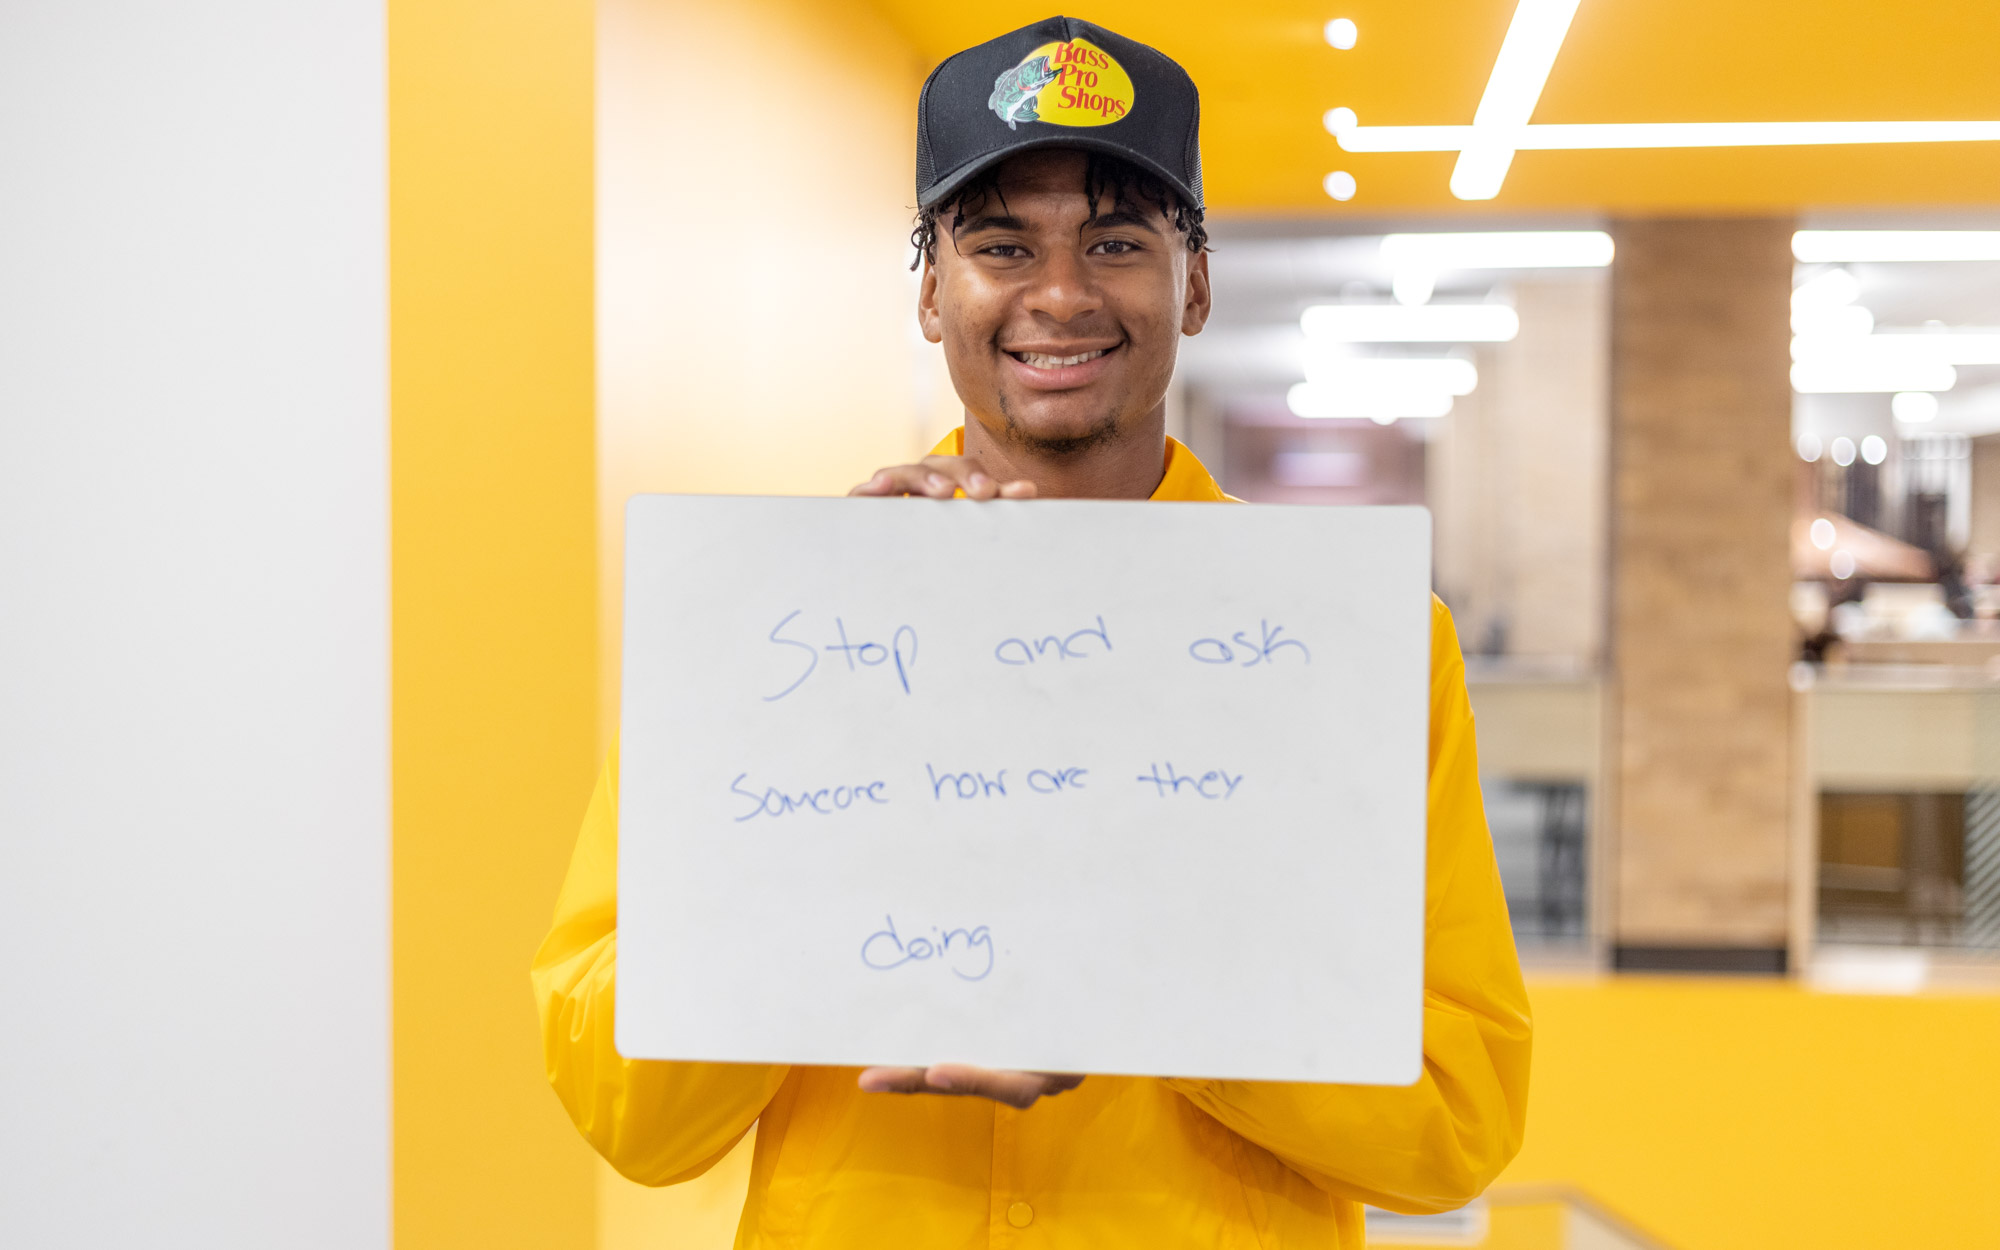 Bass
Pro
Shops
Stop and ask
Someone how are they
doing.